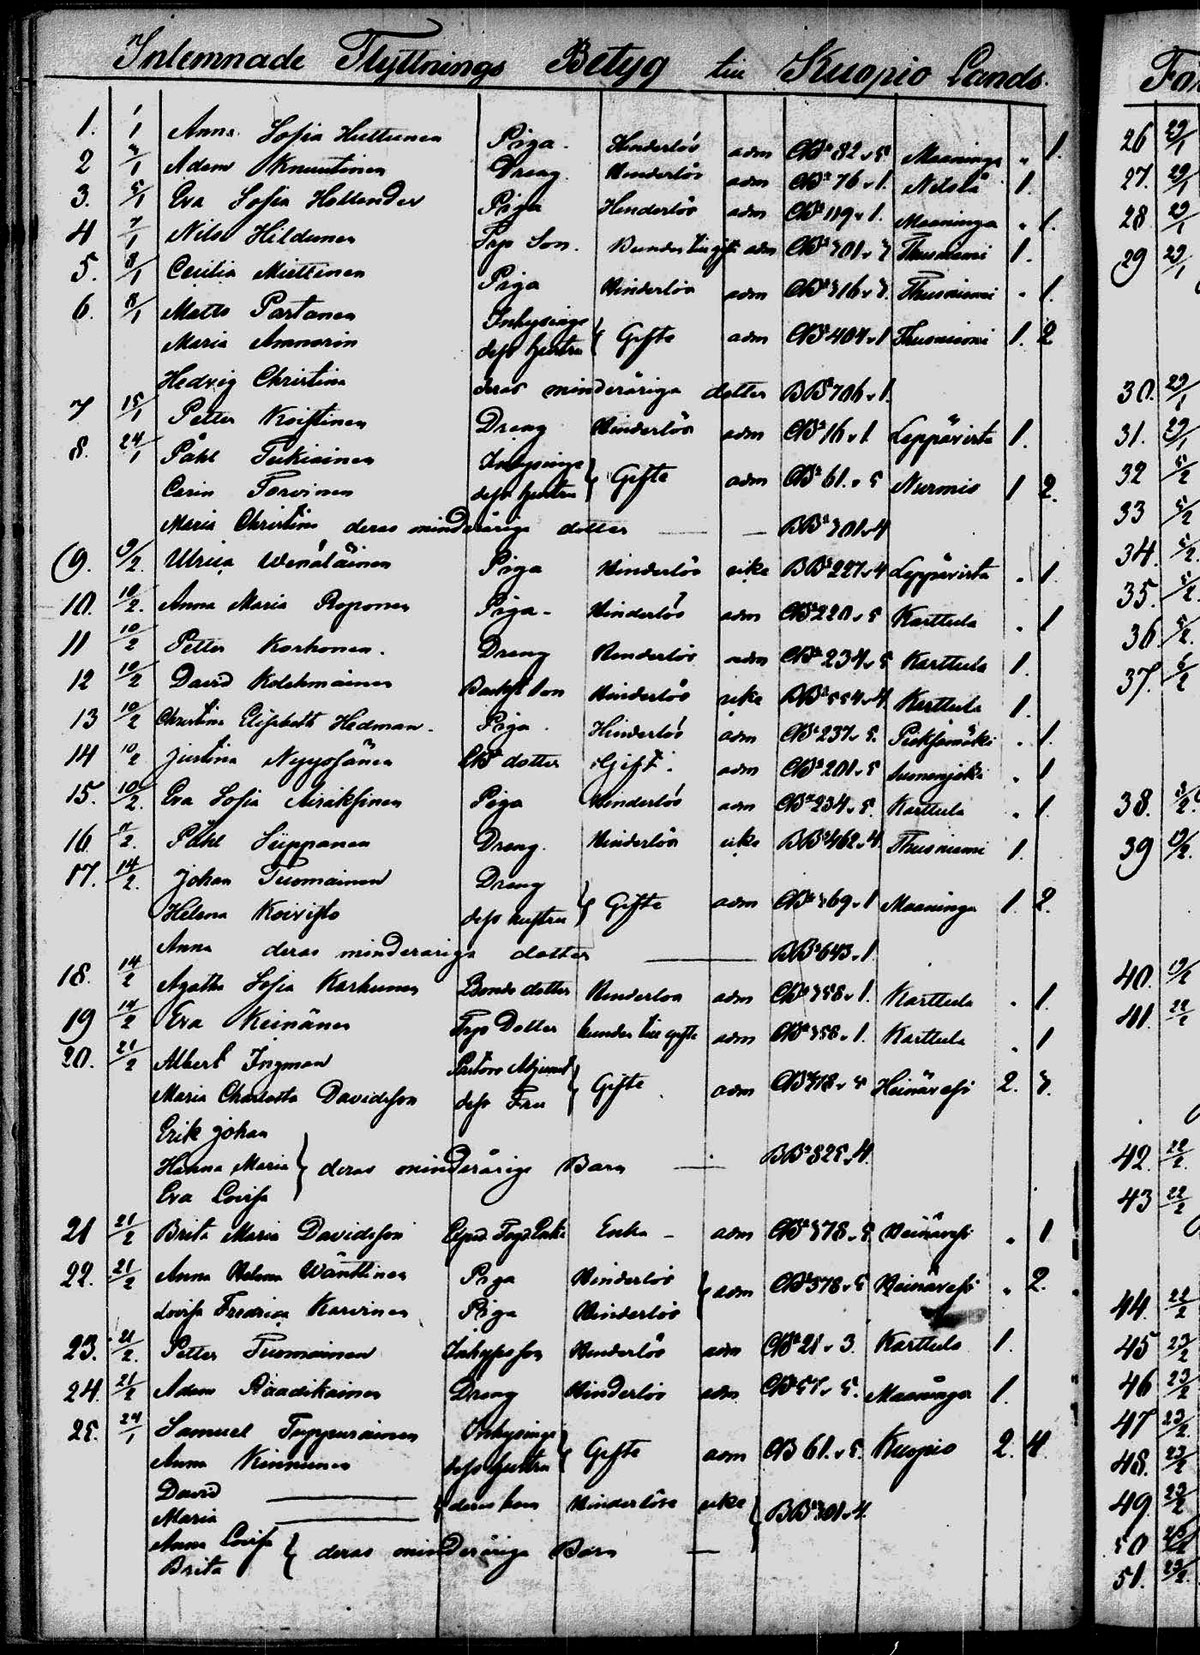 Inlemnade Flyttnings Betyg till Kuopio Lands
1. 1/1 Anna Sofia Huttunen Piga. Hinderlös adm CB² 82 v 5 Maaninga " 1.
2 3/1 Adam Knuutinen Dreng Hinderlös adm CB² 76 v 1. Nilsiä 1.
3. 5/1 Eva Sofia Hollender Piga Hinderlös adm CB² 119 v 1. Maaninga " 1.
4 7/1 Nils Hildunen Son. adm CB² 301 v 3 Thusniemi 1.
5. 8/1 Cecilia Miettinen Piga Hinderlös adm CB² 316 v 3. Thusniemi " 1.
6. 8/1 Matts Partanen Inhysinge
Maria Ammorin dess hustru } Gifte adm CB² 404 v 1 Thusniemi 1. 2
Hedvig Christina deras minderåriga dotter BB² 706 v 1.
7 15/1 Petter Koistinen Dreng Hinderlös adm CB² 16 v 1. Leppävirta 1.
8. 24/1 Påhl Tukiainen Inhysinge
Carin Torvinen dess hustru } Gifte adm CB² 61. v 5 Nurmis 1 2.
Maria Christina deras minderåriga dotter — — BB² 301 v 4
9. 9/2. Ulrica Wenäläinen Piga Hinderlös icke BB² 227 v 4 Leppävirta " 1.
10. 10/2. Anna Maria Roponen Piga - Hinderlös adm CB² 220 v 5 Karttula " 1
11 10/2 Petter Korhonen. Dreng Hinderlös adm CB² 234 v 5 Karttula 1.
12 10/2 David Kolehmainen son Hinderlös icke BB² 554 v 4 Karttula 1.
13 10/2 Christina Elisabeth Hedman. Piga Hinderlös adm CB² 237 v 5. Pieksämäki " 1.
14 10/2 Justina Nyyssönen dotter Gift. adm CB² 201 v 5 " 1
15. 10/2. Eva Sofia Airaksinen Piga Hinderlös adm CB² 234 v 5. Karttula " 1
16. 11/2. Påhl Sirppanen Dreng. Hinderlös icke BB² 462 v 4. Thusniemi 1.
17. 14/2. Johan Tuomainen Dreng
Helena Koivisto dess hustru } Gifte adm CB² 369 v 1 Maaninga 1. 2.
Anna deras minderåriga dotter — BB² 643 v 1.
18. 14/2 Agatha Sofia Karhunen Bonde dotter Hinderlös adm CB² 358 v 1. Karttula " 1.
19 14/2 Eva Keinänen Dotter adm CB² 358 v 1. Karttula " 1
20. 21/2 Albert Ingman Pastors Adjunct
Maria Charlotta Davidsson dess Fru } Gifte adm CB² 378 v 5 Heinävesi 2. 3.
Erik Johan
Hanna Maria } deras minderårige Barn — BB² 525 v 4
Eva Lovisa
21 21/2 Brita Maria Davidsson Enka - adm CB² 378 v 5 Heinävesi " 1
22. 21/2 Anna Helena Wänttinen Piga Hinderlös
Lovisa Fredrica Karvinen Piga Hinderlös } adm CB² 378 v 5 Heinävesi " 2.
23. 21/2. Petter Tuomainen Inhysson Hinderlös adm CB² 21 v 3. Karttula 1.
24. 21/2 Adam Räädikainen Dreng Hinderlös adm CB² 57 v 5. Maaninga 1.
25. 24/1 Samuel Tuppurainen Inhysinge
Anna Kinnunen dess hustru } Gifte adm CB 61. v 5. Kuopio 2. 4.
David —
Maria — } deras barn Hinderlöse icke } BB² 301 v 4.
Anna Lovisa
Brita } deras minderåriga Barn —
26 29/1
27. 29/1
28 29/1
29 29/1
30. 29/1
31. 29/1
32 5/2
33 5/2
34. 5/2.
35. 5/2.
36. 5/2.
37. 6/2
38.
39
40.
41. 22/2
42. 22/2
43 22/2
44. 22/2
45 23/2
46 23/2
47 23/2
48. 23/2
49. 23/2
50
51. 23/2.